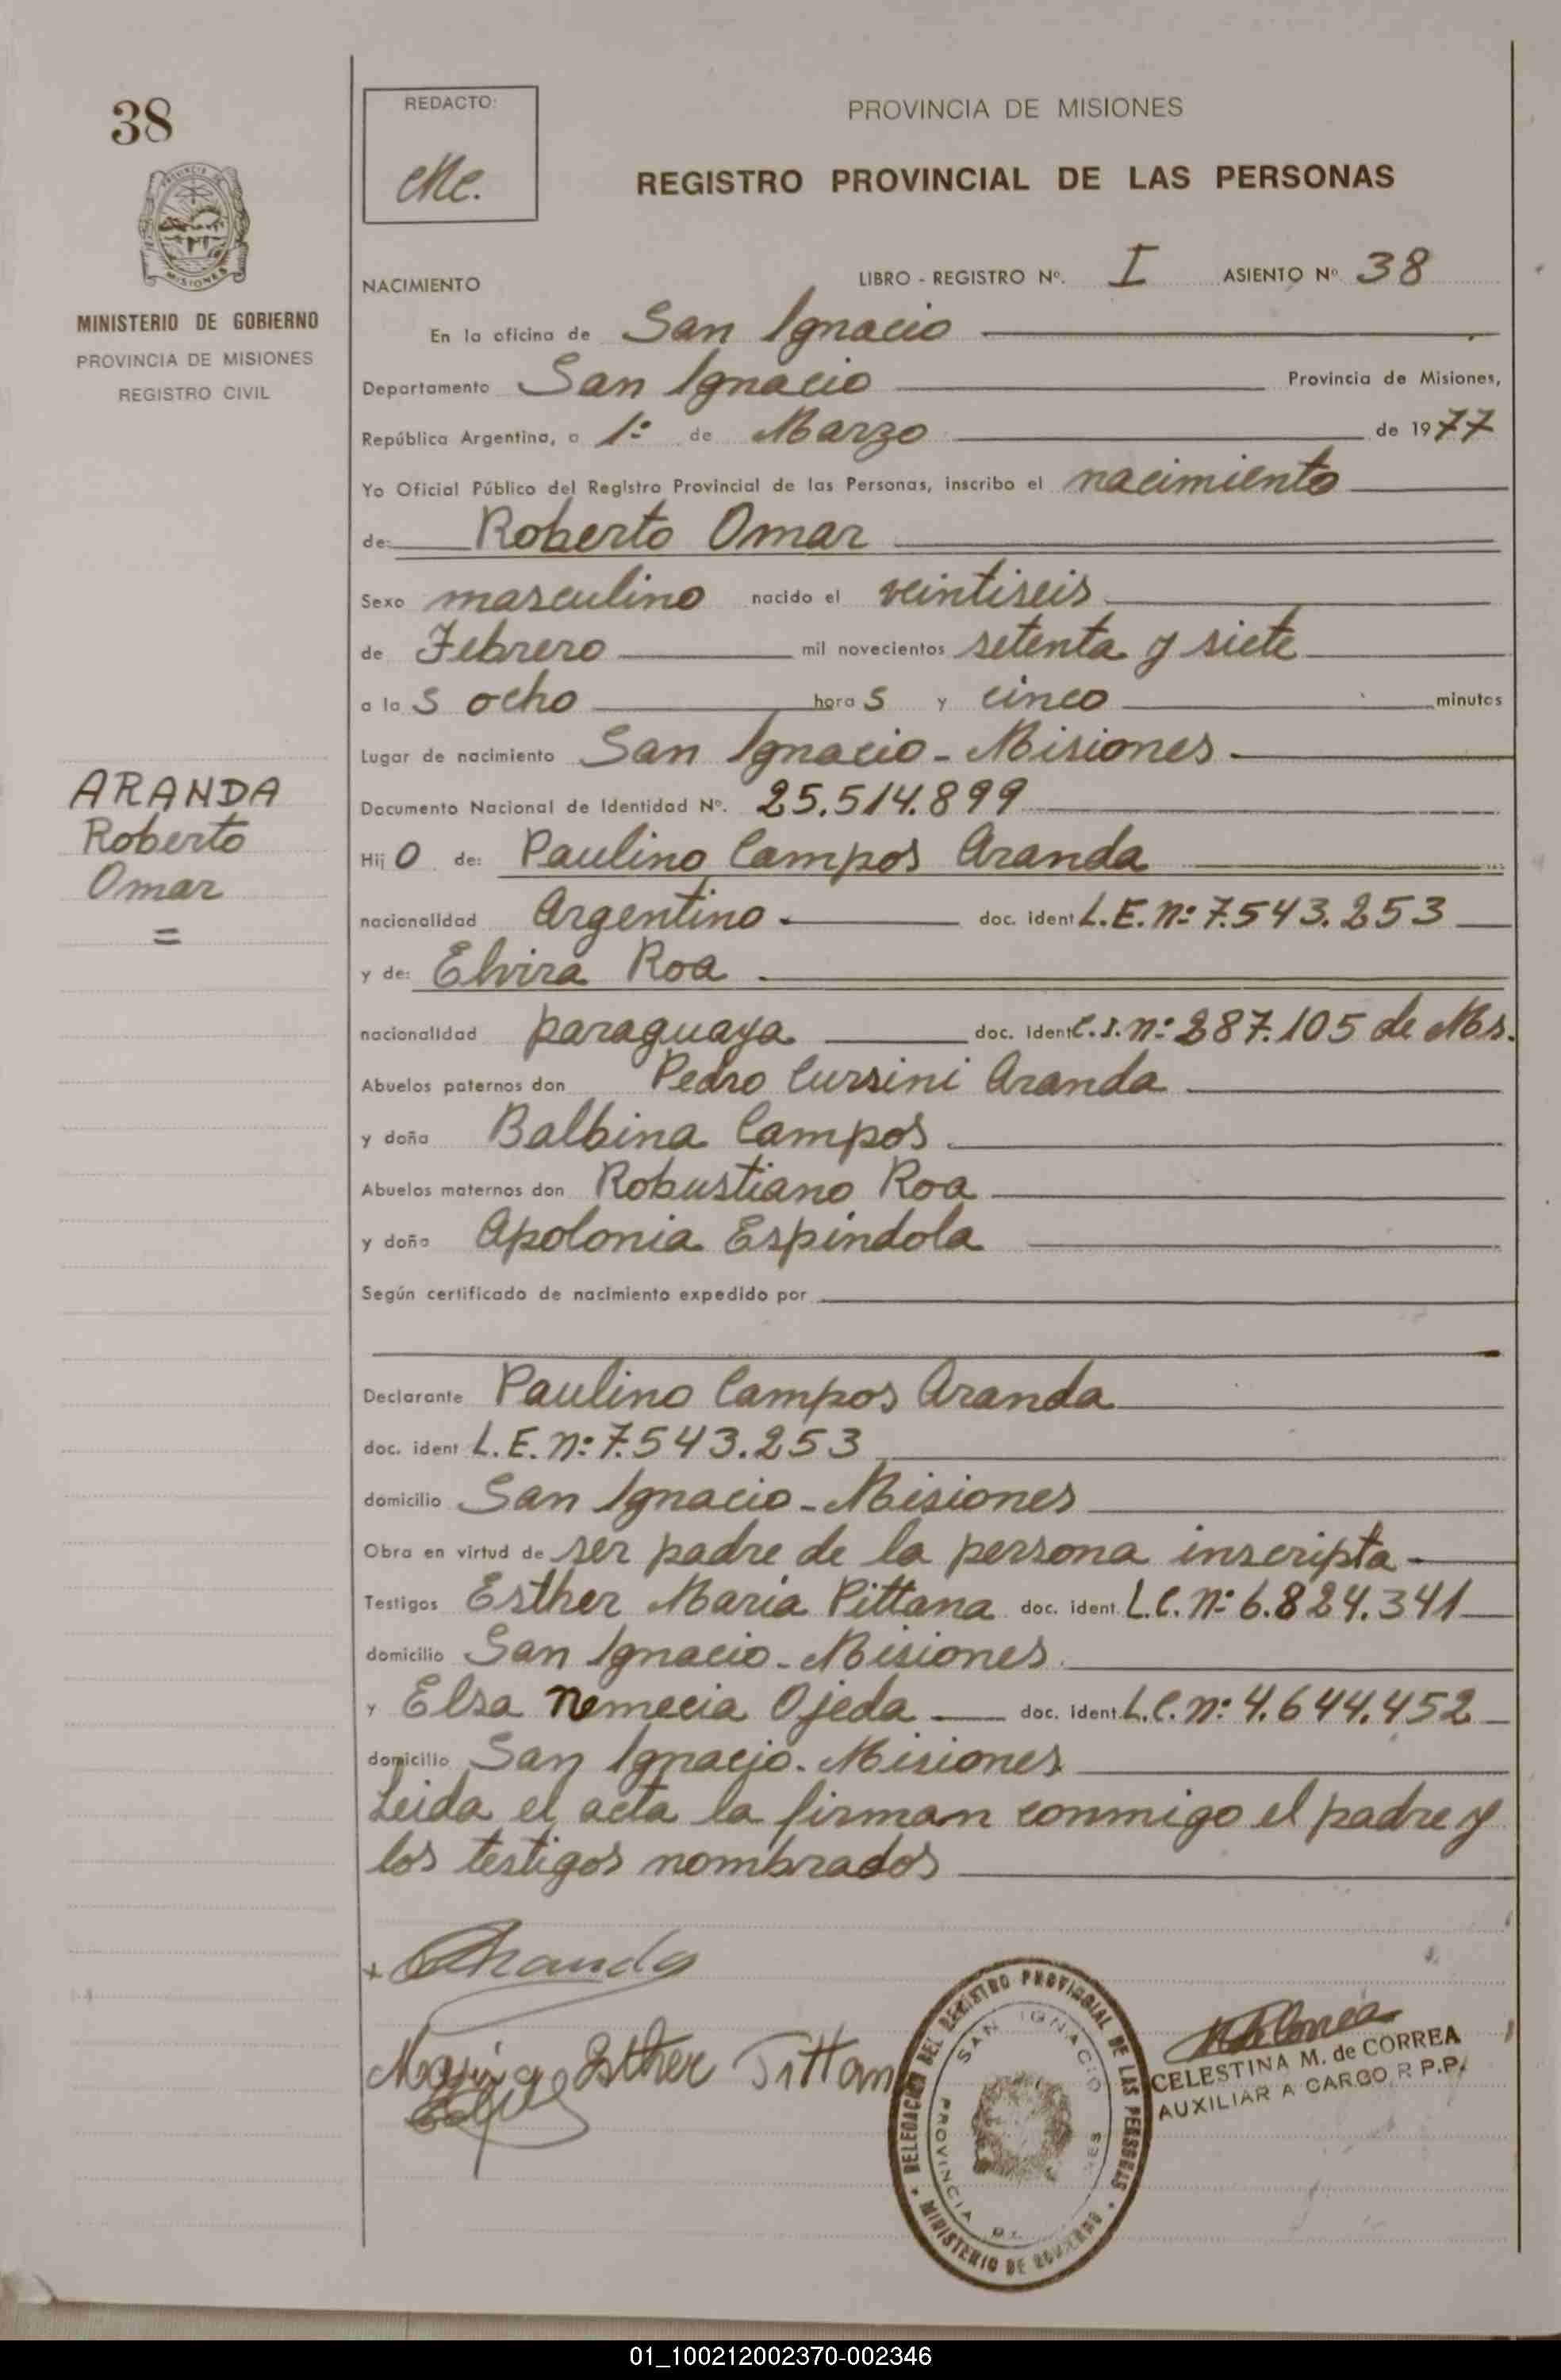 38
PROVINCIA DE
MISIONES
MINISTERIO DE GOBIERNO
PROVINCIA DE MISIONES
REGISTRO CIVIL
ARANDA
Roberto
Omar
=
REDACTO:
PROVINCIA DE MISIONES
REGISTRO PROVINCIAL DE LAS PERSONAS
NACIMIENTO LIBRO - REGISTRO Nº. I ASIENTO Nº 38
En la oficina de San Ignacio
Departamento San Ignacio Provincia de Misiones,
República Argentina, a 1º de Marzo de 1977
Yo Oficial Público del Registro Provincial de las Personas, inscribo el nacimiento
de: Roberto Omar
Sexo masculino nacido el veintiseis
de Febrero mil novecientos setenta y siete
a las ocho horas y cinco minutos
Lugar de nacimiento San Ignacio - Misiones
Documento Nacional de Identidad Nº. 25.514.899
Hijo de: Paulino Campos Aranda
nacionalidad Argentino doc. ident L.E. nº 7.543.253
y de: Elvira Roa
nacionalidad paraguaya doc. ident C.I. nº 287.105 de Ms.
Abuelos paternos don Pedro Cursini Aranda
y doña Balbina Campos
Abuelos maternos don Robustiano Roa
y doña Apolonia Espindola
Según certificado de nacimiento expedido por
Declarante Paulino Campos Aranda
doc. ident L.E. nº 7.543.253
domicilio San Ignacio - Misiones
Obra en virtud de ser padre de la persona inscripta
Testigos Esther Maria Pittana doc. ident. L.C. nº 6.824.341
domicilio San Ignacio - Misiones
y Elsa Nemecia Ojeda doc. ident. L.C. nº 4.644.452
domicilio San Ignacio - Misiones
Leida el acta la firman conmigo el padre y
los testigos nombrados
+ Aranda
Esther Pittan
DELEGACION DEL REGISTRO PROVINCIAL DE LAS PERSONAS
SAN IGNACIO
PROVINCIA DE
MINISTERIO DE GOBIERNO
CELESTINA M. de CORREA
AUXILIAR A CARGO R.P.P.
01_100212002370-002346